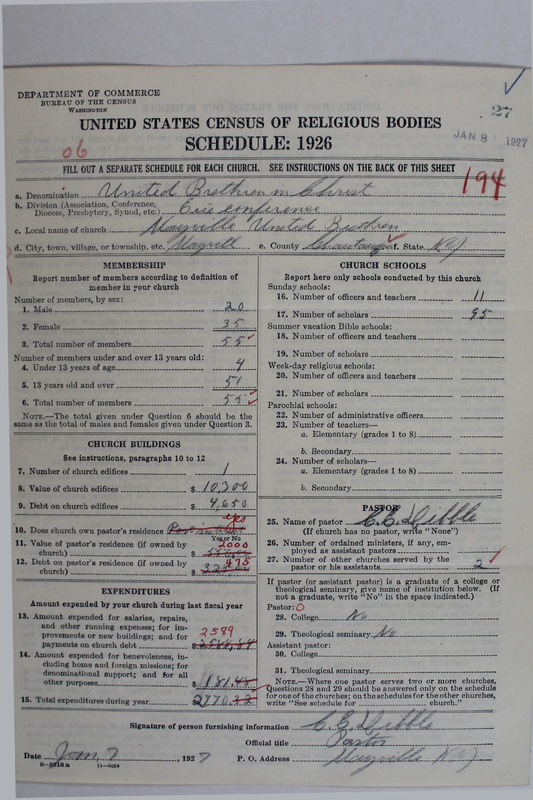 DEPARTMENT OF COMMERCE
BUREAU OF THE CENSUS
WASHINGTON
27
UNITED STATES CENSUS OF RELIGIOUS BODIES
SCHEDULE: 1926
JAN 8 1927
06
FILL OUT A SEPARATE SCHEDULE FOR EACH CHURCH. SEE INSTRUCTIONS ON THE BACK OF THIS SHEET
194
a. Denomination United Brethren in Christ
b. Division (Association, Conference, Diocese, Presbytery, Synod, etc.) Erie conference
c. Local name of church Mayville United Brethren
d. City, town, village, or township, etc. Mayville e. County Chautauqua f. State N.Y.
MEMBERSHIP
Report number of members according to definition of
member in your church
Number of members, by sex:
1. Male 20
2. Female 35
3. Total number of members 55
Number of members under and over 13 years old:
4. Under 13 years of age 4
5. 13 years old and over 51
6. Total number of members 55
NOTE.—The total given under Question 6 should be
same as the total of males and females given under Question 3.
CHURCH BUILDINGS
See instructions, paragraphs 10 to 12
7. Number of church edifices 1
8. Value of church edifices $ 10,300
9. Debt on church edifices $ 4,650
yes
10. Does church own pastor's residence
Yes or No
11. Value of pastor's residence (if owned by
church) $ 2000
12. Debt on pastor's residence (if owned by
church) $ 475
EXPENDITURES
Amount expended by your church during last fiscal year
13. Amount expended for salaries, repairs,
and other running expenses; for im-
provements or new buildings; and for
payments on church debt 2589
$ 2588.84
14. Amount expended for benevolences, in-
cluding home and foreign missions; for
denominational support; and for all
other purposes $ 181.48
15. Total expenditures during year 2770.32
CHURCH SCHOOLS
Report here only schools conducted by this church
Sunday schools:
16. Number of officers and teachers 11
17. Number of scholars 95
Summer vacation Bible schools:
18. Number of officers and teachers
19. Number of scholars
Week-day religious schools:
20. Number of officers and teachers
21. Number of scholars
Parochial schools:
22. Number of administrative officers
23. Number of teachers—
a. Elementary (grades 1 to 8)
b. Secondary
24. Number of scholars—
a. Elementary (grades 1 to 8)
b. Secondary
PASTOR
25. Name of pastor C. E. Dibble
(If church has no pastor, write "None")
26. Number of ordained ministers, if any, em-
ployed as assistant pastors
27. Number of other churches served by the
pastor or his assistants 2
If pastor (or assistant pastor) is a graduate of a college or
theological seminary, give name of institution below. (If
not a graduate, write "No" in the space indicated.)
Pastor: 0
28. College No
29. Theological seminary No
Assistant pastor:
30. College
31. Theological seminary
NOTE.—Where one pastor serves two or more churches,
Questions 28 and 29 should be answered only on the schedule
for one of the churches; on the schedules for the other churches,
write "See schedule for church."
Signature of person furnishing information C. E. Dibble
Official title Pastor
Date Jan. 7, 1927 P. O. Address Mayville N.Y.
8-5518a 11-9034